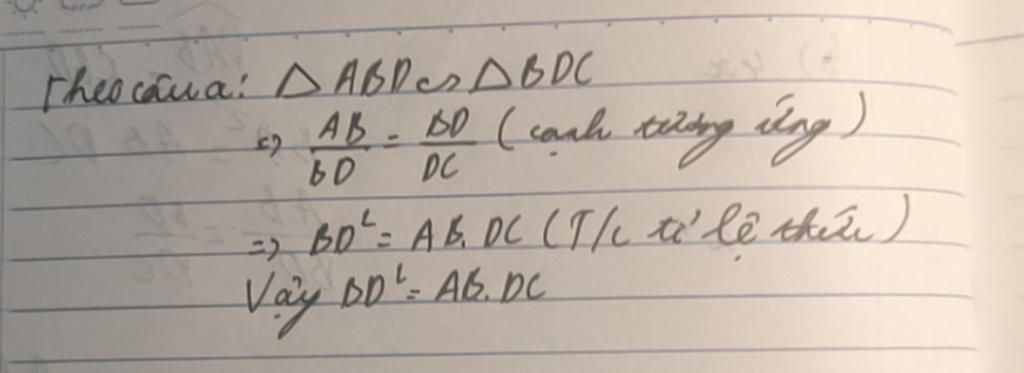 Theo câu a: △ ABD ∽ △ BDC
=> AB/BD = BD/DC (cạnh tương ứng)
=> BD² = AB. DC (T/c tỉ lệ thức)
Vậy BD² = AB. DC